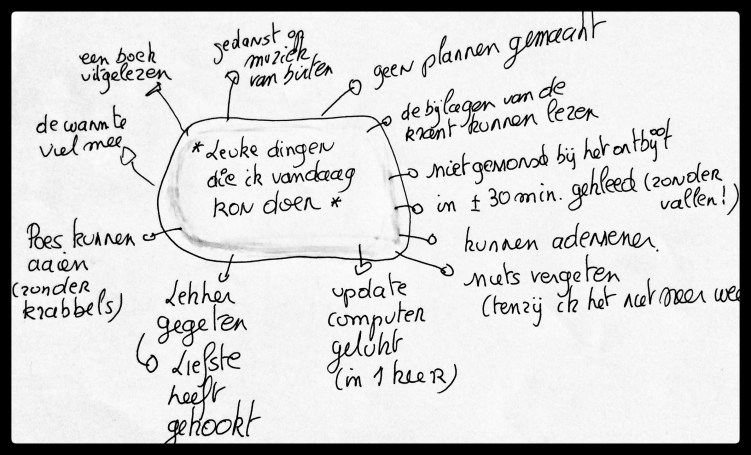 * Leuke dingen
die ik vandaag
kon doen *
een boek
uitgelezen
gedanst op
muziek
van buiten
geen plannen gemaakt
de bijlagen van de
krant kunnen lezen
niet gemorsd bij het ontbijt
in ± 30 min. gekleed (zonder
vallen!)
kunnen ademenen.
niets vergeten
(tenzij ik het niet meer wee
update
computer
gelukt
(in 1 keer)
Lekker
gegeten
Liefste
heeft
gekookt
Poes kunnen
aaien
(zonder
krabbels)
de warmte
viel mee